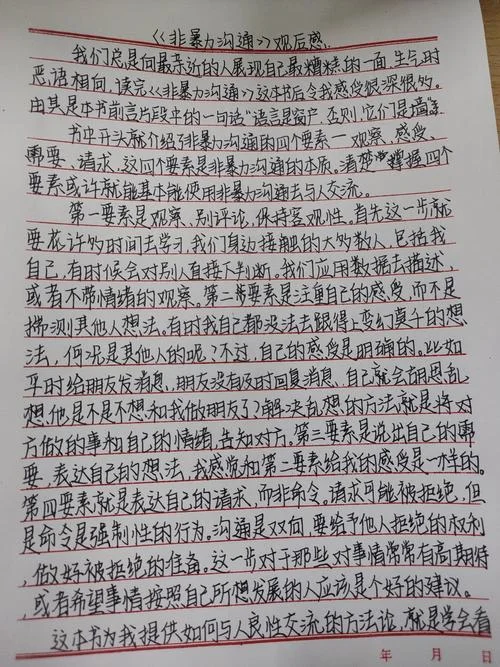 《《非暴力沟通》》观后感.
我们总是向最亲近的人展现自己最糟糕的一面,生气时
恶语相向,读完《《非暴力沟通》》这本书后令我感受很深很多.
由其是本书前言片段中的一句话"语言是窗户,否则,它们是墙"等
书中开头就介绍了非暴力沟通的四个要素一观察、感受、
需要、请求,这四个要素是非暴力沟通的本质。清楚掌握四个
要素或许就能基本能使用非暴力沟通去与人交流。
第一要素是观察,别评论,保持客观性,首先这一步就
要花许多时间去学习,我们身边接触的大多数人,包括我
自己,有时候会对别人直接下判断。我们应用数据去描述,
或者不带情绪的观察。第二步要素是注重自己的感受,而不是
揣测其他人想法。有时我自己都没法去跟得上变幻莫千的想
法,何况是其他人的呢?不过,自己的感受是明确的。比如
平时给朋友发消息,朋友没有及时回复消息,自己就会胡思乱
想,他是不是不想和我做朋友了?解决乱想的方法,就是将对
方做的事和自己的情绪,告知对方。第三要素是说出自己的需
要,表达自己的想法,我感觉和第二要素给我的感受是一样的。
第四要素就是表达自己的请求,而非命令。请求可能被拒绝,但
是命令是强制性的行为。沟通是双向,要给予他人拒绝的权利
,做好被拒绝的准备。这一步对于那些对事情常常有高期待
,或者希望事情按照自己所想发展的人应该是个好的建议。
这本书为我提供如何与人良性交流的方法论,就是学会看
年 月 日